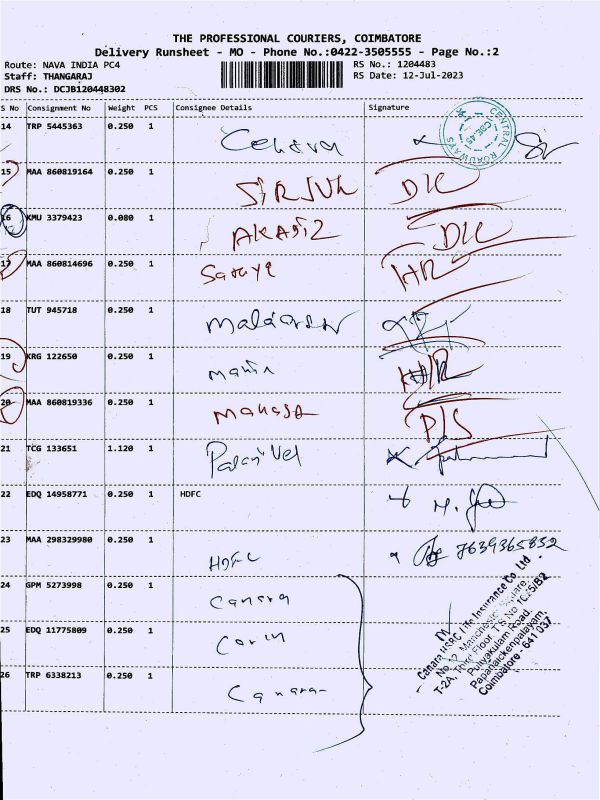 THE PROFESSIONAL COURIERS, COIMBATORE
Delivery Runsheet - MO - Phone No.:0422-3505555 - Page No.:2
Route: NAVA INDIA PC4 RS No.: 1204483
Staff: THANGARAJ RS Date: 12-Jul-2023
DRS No.: DCJB120448302
S No Consignment No Weight PCS Consignee Details Signature
14 TRP 5445363 0.250 1
CENTRAL ROADWAYS CBE.45
15 MAA 860819164 0.250 1
16 KMU 3379423 0.080 1
17 MAA 860814696 0.250 1 HR
18 TUT 945718 0.250 1
19 KRG 122650 0.250 1
20 MAA 860819336 0.250 1 P/S
21 TCG 133651 1.120 1 Palanivel
22 EDQ 14958771 0.250 1 HDFC
23 MAA 298329980 0.250 1 HDFC 7639365832
24 GPM 5273998 0.250 1 Canara
25 EDQ 11775809 0.250 1
26 TRP 6338213 0.250 1 Canara
Canara HSBC Life Insurance Co. Ltd
No.12, Manchester Square,
T-2A, Third Floor, T.S.No 1C/5/B2
Puliyakulam Road,
Papanaickenpalayam,
Coimbatore - 641 037